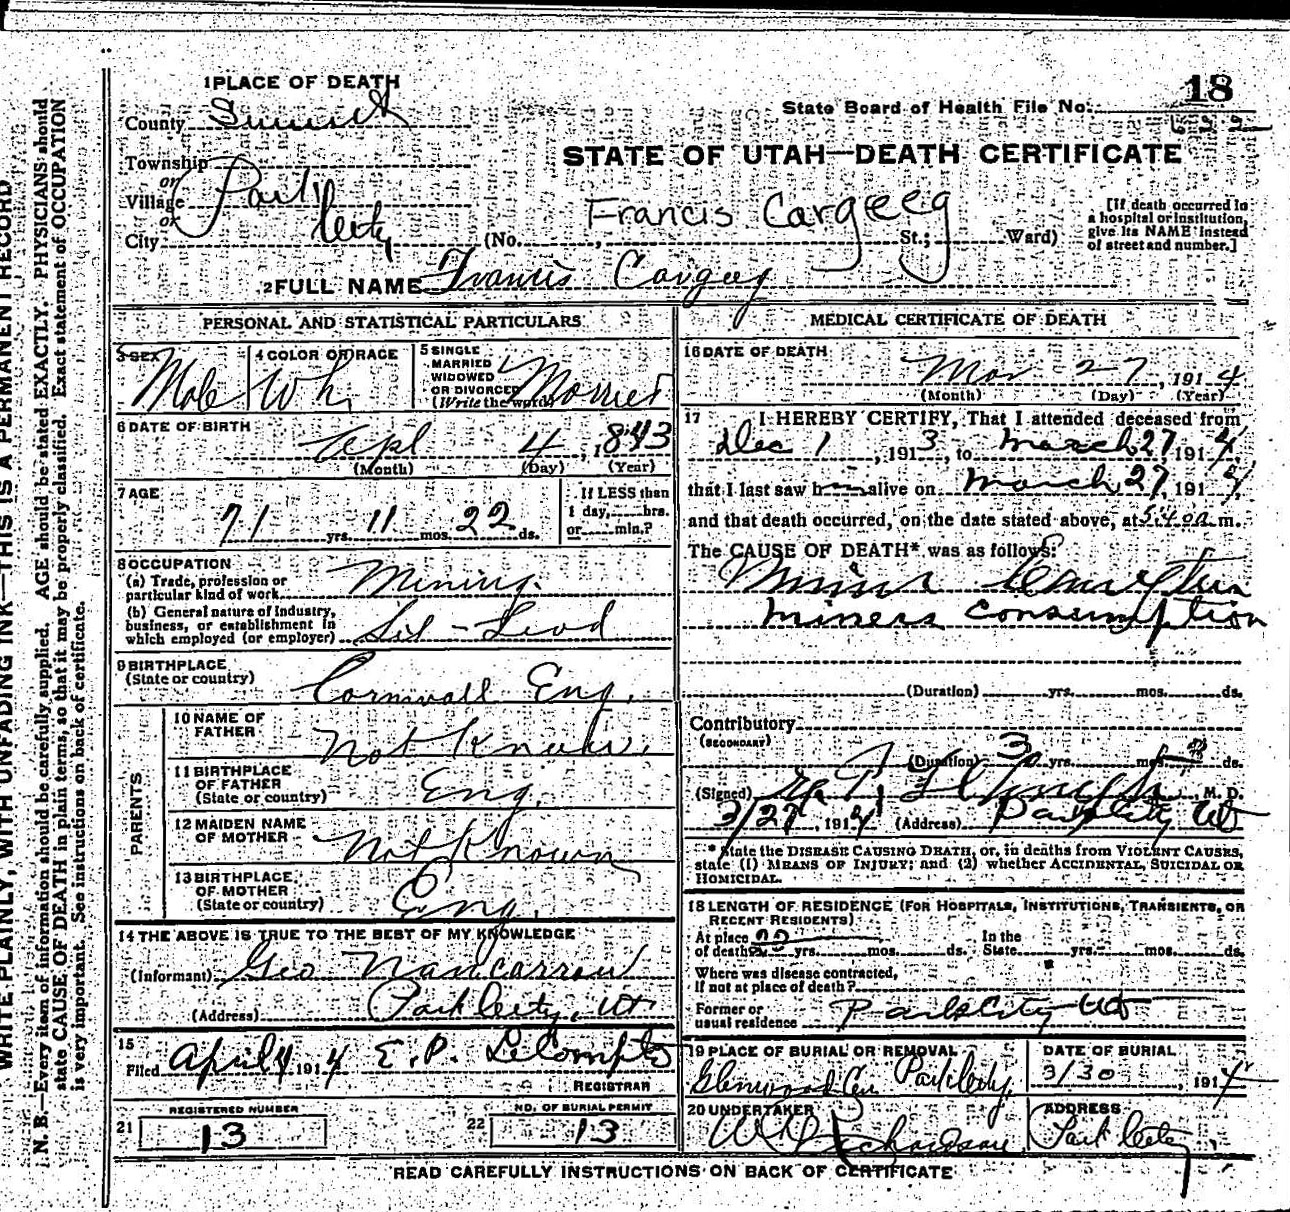 WRITE PLAINLY, WITH UNFADING INK—THIS IS A PERMANENT RECORD
N. B.—Every item of information should be carefully supplied. AGE should be stated EXACTLY. PHYSICIANS should
state CAUSE OF DEATH in plain terms, so that it may be properly classified. Exact statement of OCCUPATION
is very important. See instructions on back of certificate.
1 PLACE OF DEATH
18
County Summit
State Board of Health File No.
Township
STATE OF UTAH—DEATH CERTIFICATE
or
Village Park
or
City City
Francis Cargeeg
(No. , St.; Ward)
[If death occurred in
a hospital or institution,
give its NAME instead
of street and number.]
2 FULL NAME Francis Cargeeg
PERSONAL AND STATISTICAL PARTICULARS
3 SEX Male
4 COLOR OR RACE Wh.
5 SINGLE
MARRIED
WIDOWED
OR DIVORCED
(Write the word) Married
6 DATE OF BIRTH
Apl 4, 1843
(Month) (Day) (Year)
7 AGE
71 yrs. 11 mos. 22 ds.
If LESS than
1 day, hrs.
or min.?
8 OCCUPATION
(a) Trade, profession or
particular kind of work Mining.
(b) General nature of industry,
business, or establishment in
which employed (or employer) Sil - Lead
9 BIRTHPLACE
(State or country) Cornwall Eng.
PARENTS
10 NAME OF
FATHER Not Known.
11 BIRTHPLACE
OF FATHER
(State or country) Eng.
12 MAIDEN NAME
OF MOTHER Not Known
13 BIRTHPLACE
OF MOTHER
(State or country) Eng.
14 THE ABOVE IS TRUE TO THE BEST OF MY KNOWLEDGE
(Informant) Geo Nancarrow
(Address) Park City, Ut.
15
Filed April 4 1914 E. P. LeCompte
REGISTRAR
REGISTERED NUMBER
21 13
NO. OF BURIAL PERMIT
22 13
MEDICAL CERTIFICATE OF DEATH
16 DATE OF DEATH
Mar 27, 1914
(Month) (Day) (Year)
17 I HEREBY CERTIFY, That I attended deceased from
Dec 1, 1913, to March 27 1914,
that I last saw h alive on March 27, 1914,
and that death occurred, on the date stated above, at 5:40 a m.
The CAUSE OF DEATH* was as follows:
Miners Consumption
miners consumption
(Duration) yrs. mos. ds.
Contributory
(SECONDARY)
(Duration) 3 yrs. mos. ds.
(Signed) , M. D.
3/27, 1914 (Address) Park City Ut
* State the DISEASE CAUSING DEATH, or, in deaths from VIOLENT CAUSES,
state (1) MEANS OF INJURY; and (2) whether ACCIDENTAL, SUICIDAL OR
HOMICIDAL.
18 LENGTH OF RESIDENCE (FOR HOSPITALS, INSTITUTIONS, TRANSIENTS, OR
RECENT RESIDENTS)
At place In the
of death yrs. mos. ds. State yrs. mos. ds.
Where was disease contracted,
if not at place of death?
Former or
usual residence Park City Ut
19 PLACE OF BURIAL OR REMOVAL
Glenwood Cem Park City,
DATE OF BURIAL
3/30, 1914
20 UNDERTAKER
Richardson
ADDRESS
Park City
READ CAREFULLY INSTRUCTIONS ON BACK OF CERTIFICATE